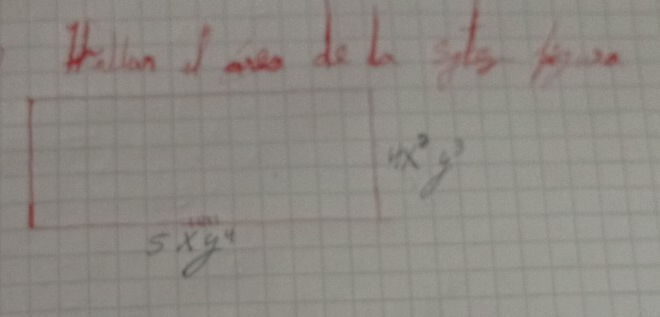 Hallan el area de la sgtes figura
4x³y³
5xy⁴